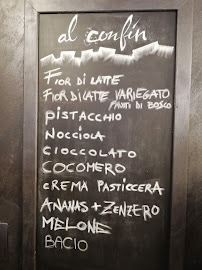 al confin
FIOR DI LATTE
FIOR DI LATTE VARIEGATO
FRUTTI DI BOSCO
PISTACCHIO
NOCCIOLA
CIOCCOLATO
COCOMERO
CREMA PASTICCERA
ANANAS + ZENZERO
MELONE
BACIO